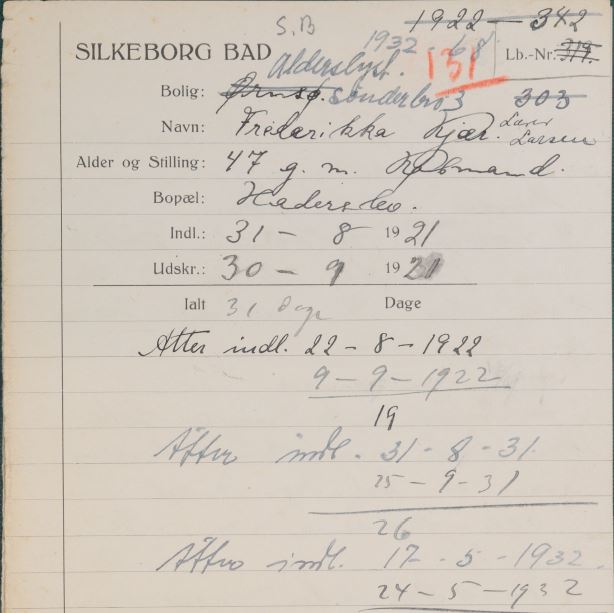 S.B 1922 - 342
1932 - 68
SILKEBORG BAD Alderslyst. 131 Lb.-Nr. 319.
Bolig: Ørnsø. Sønderbro 3 303
Navn: Frederikka Kjær. Larsen
Alder og Stilling: 47 g. m. Købmand.
Bopæl: Haderslev.
Indl.: 31 - 8 1921
Udskr.: 30 - 9 1921
Ialt 31 Dage Dage
Atter indl. 22 - 8 - 1922
9 - 9 - 1922
19
Atter indl. 31 - 8 - 31.
25 - 9 - 31
26
Atter indl. 17 - 5 - 1932.
24 - 5 - 1932